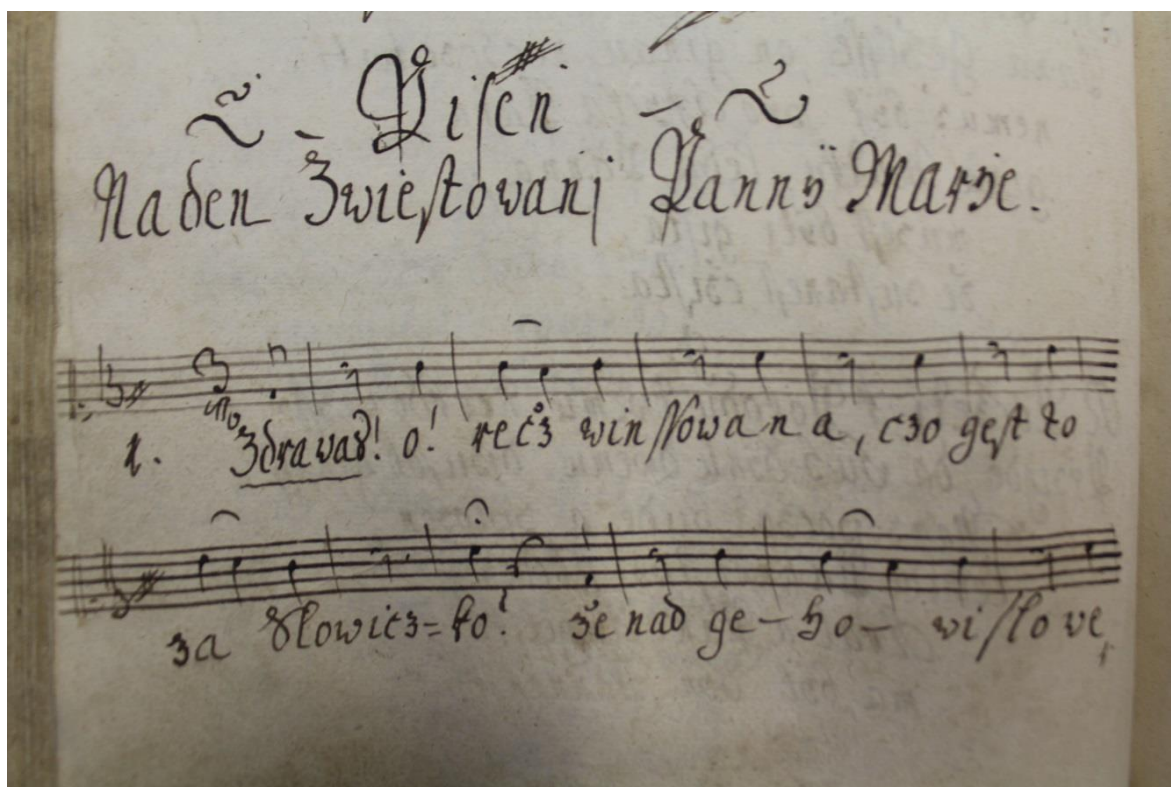 Piſen
Na den Zwieſtovanj Panny Marÿe.
1. Zdravas! o! recz winſſowana, czo geſt to
za Slowicz=ko! že nad ge-ho- wiſlove,